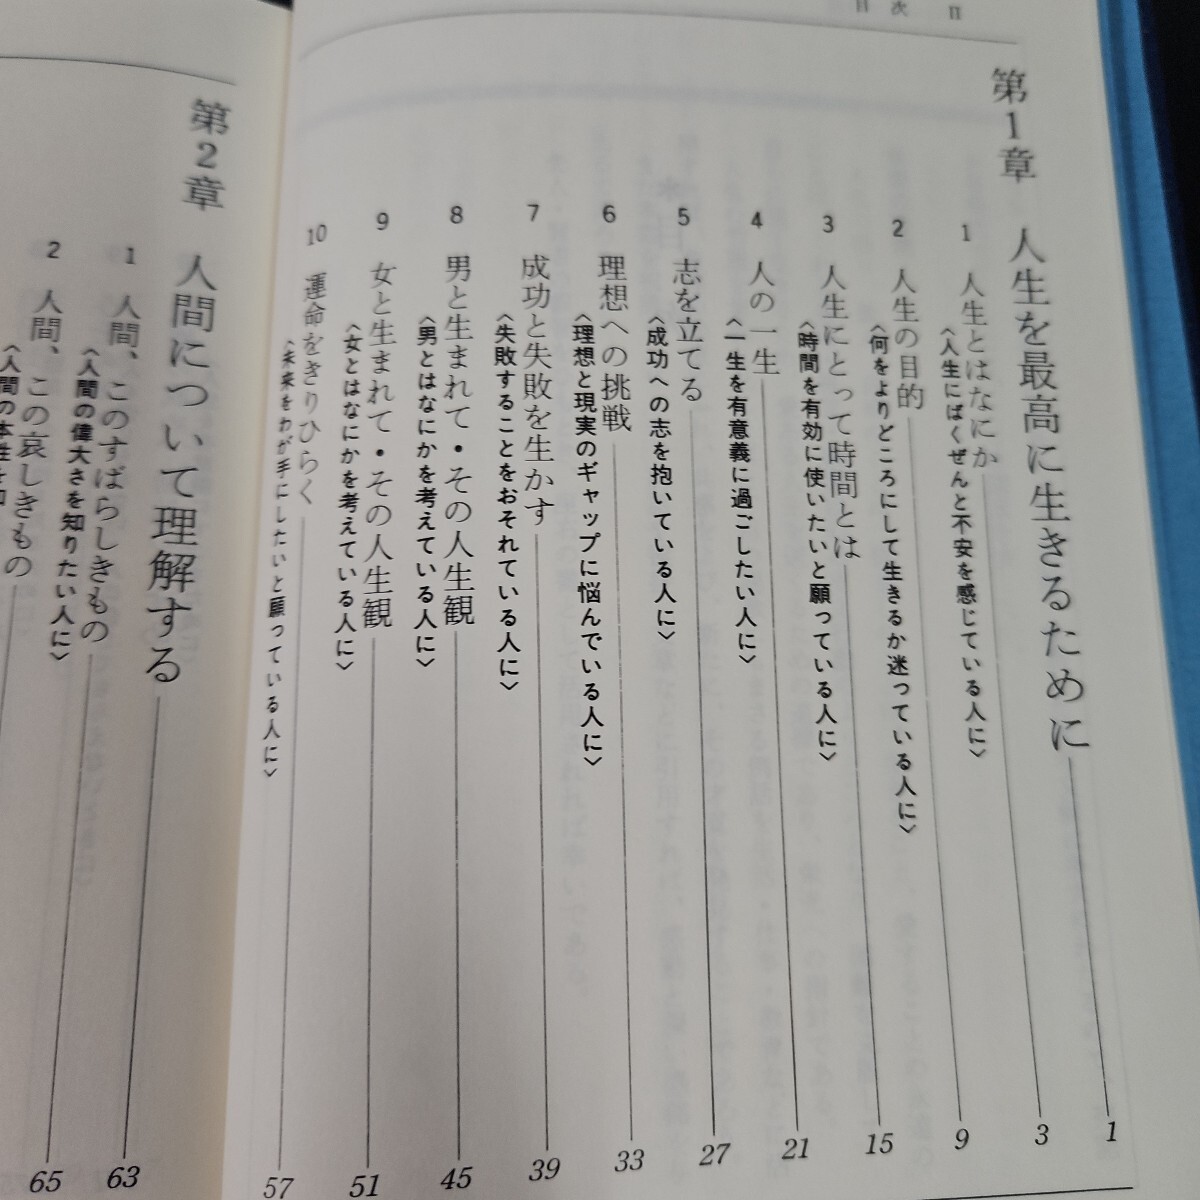 目次 II
第1章 人生を最高に生きるために 1
1 人生とはなにか 3
〈人生にばくぜんと不安を感じている人に〉
2 人生の目的 9
〈何をよりどころにして生きるか迷っている人に〉
3 人生にとって時間とは 15
〈時間を有効に使いたいと願っている人に〉
4 人の一生 21
〈一生を有意義に過ごしたい人に〉
5 志を立てる 27
〈成功への志を抱いている人に〉
6 理想への挑戦 33
〈理想と現実のギャップに悩んでいる人に〉
7 成功と失敗を生かす 39
〈失敗することをおそれている人に〉
8 男と生まれて・その人生観 45
〈男とはなにかを考えている人に〉
9 女と生まれて・その人生観 51
〈女とはなにかを考えている人に〉
10 運命をきりひらく 57
〈未来をわが手にしたいと願っている人に〉
第2章 人間について理解する 63
1 人間、このすばらしきもの 65
〈人間の偉大さを知りたい人に〉
2 人間、この哀しきもの
〈人間の本性を